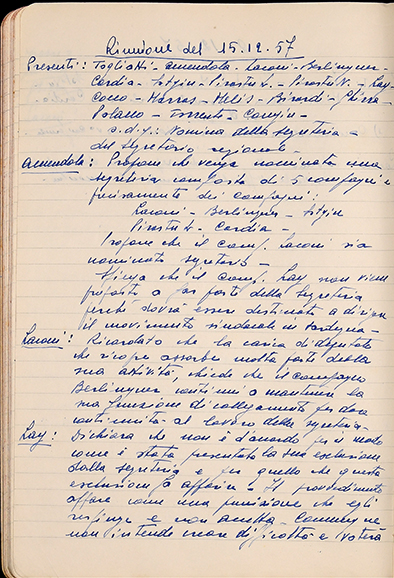 Riunione del 15.12.57
Presenti: Togliatti - Amendola - Laconi - Berlinguer -
Cardia - Sotgiu - Pirastu L. - Pirastu N. - Lay -
Cocco - Marras - Melis - Birardi - Ghirra
Polano - Torrente - Congiu -
o.d.g.: Nomina della segreteria -
del segretario regionale -
Amendola: Propone che venga nominata una
segreteria composta di 5 compagni e
precisamente dei compagni:
Laconi - Berlinguer - Sotgiu
Pirastu L. - Cardia -
Propone che il comp. Laconi sia
nominato segretario -
Spiega che il comp. Lay non viene
proposto a far parte della segreteria
perché dovrà essere destinato a dirigere
il movimento sindacale in Sardegna -
Laconi: Ricordato che la carica di deputato
che ricopre assorbe molta parte della
sua attività, chiede che il compagno
Berlinguer continui a mantenere la
sua funzione di collegamento per dare
continuità al lavoro della segreteria -
Lay: Dichiara che non è d'accordo per il modo
come è stata presentata la sua esclusione
dalla segreteria e per quello che questa
esclusione fa apparire - Il provvedimento
appare come una punizione che egli
respinge e non accetta - Comunque
non intende creare difficoltà e voterà